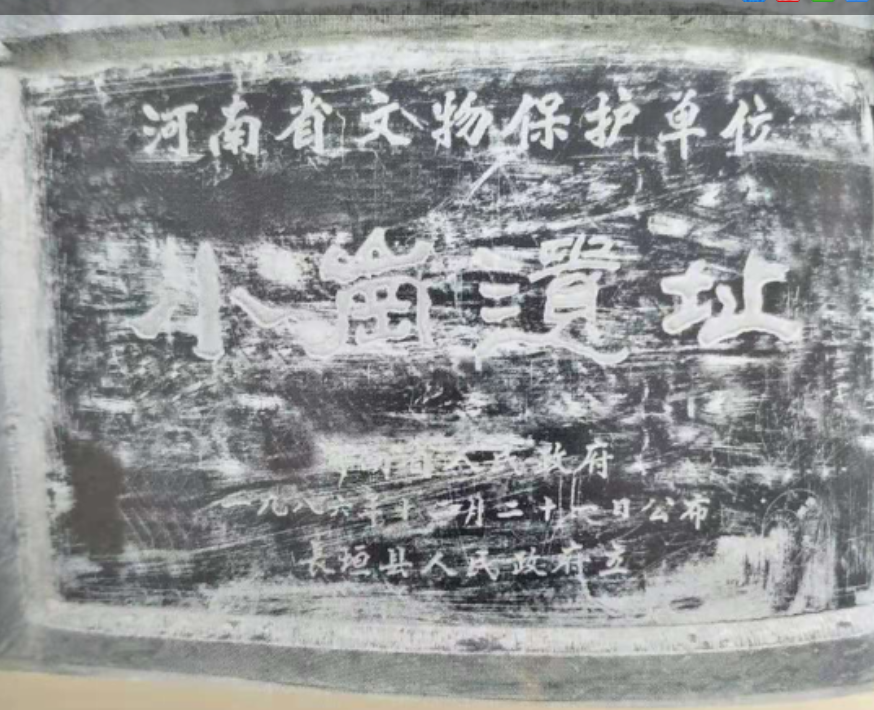 河南省文物保护单位
小崮遺址
省人民政府
一九八六年十一月二十一日公布
長垣县人民政府立